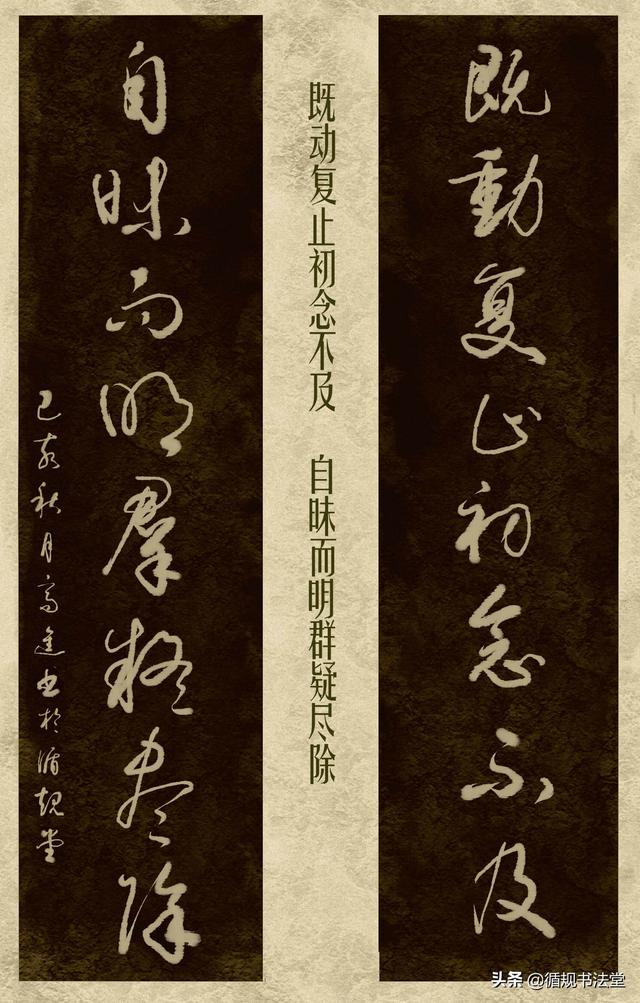 既動复止初念不及
既动复止初念不及 自昧而明群疑尽除
自昧而明羣疑尽除
己亥秋月高進书於循规堂
头条 @循规书法堂